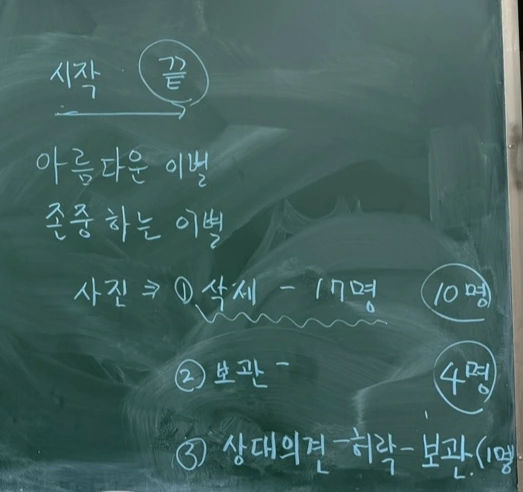 시작 끝
아름다운 이별
존중하는 이별
사진 ⇒ ① 삭제 - 17명 10명
② 보관 - 4명
③ 상대의견 - 허락 - 보관.(1명